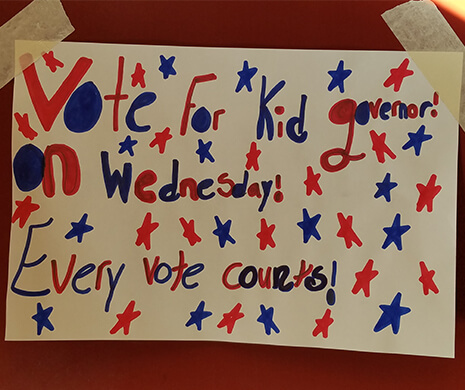 Vote For Kid governor!
on Wednesday!
Every vote counts!